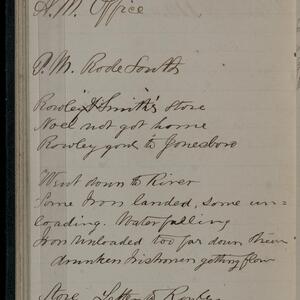 A.M. Office
P.M. Rode South
Rowley & Smith's Store
Noel not got home
Rowley gone to Jonesboro
Went down to River
Some Iron landed, some un-
loading. Water falling
Iron unloaded too far down stream
drunken Irishmen getting
Store